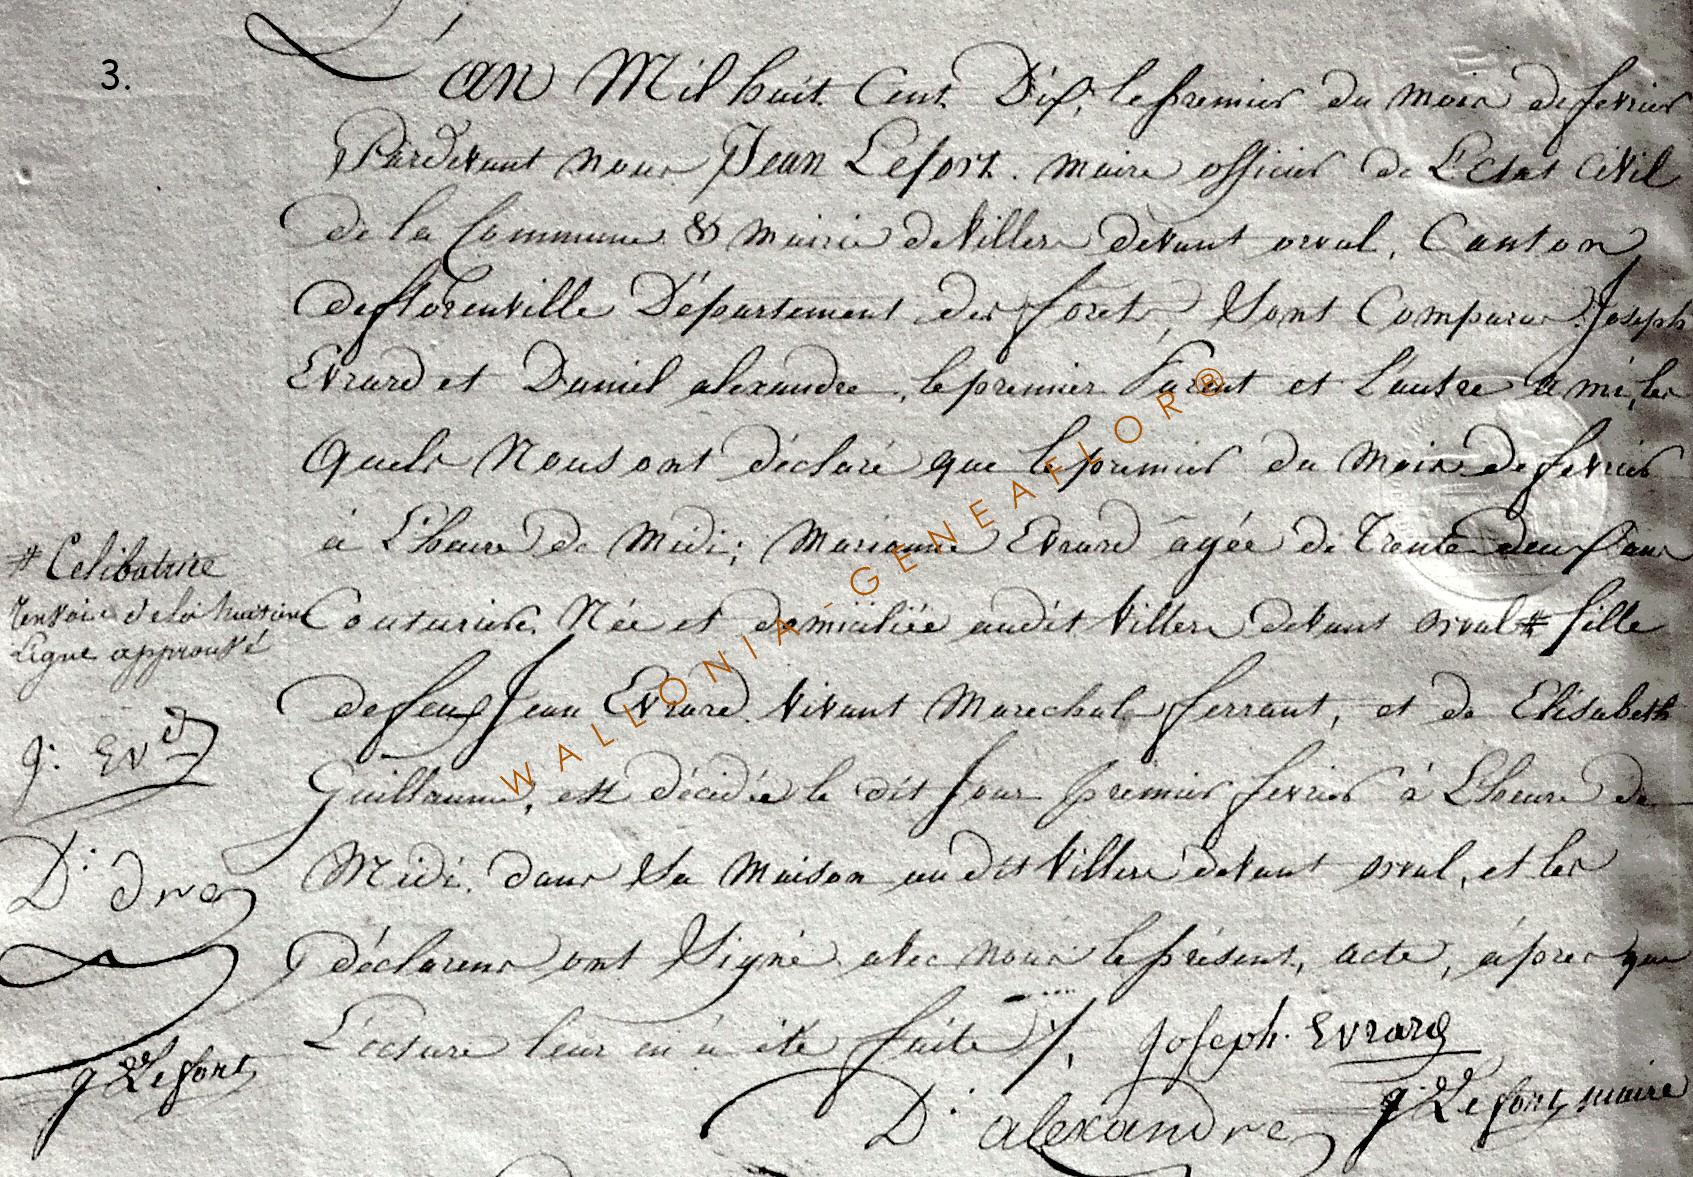 3.
L'an Mil huit Cent Dix, le premier du mois de fevrier
Pardevant nous Jean Lefort. maire officier de L'Etat Civil
de la Commune & mairie de Villers devant orval, Canton
de florenville Département des forets, Sont Comparus Joseph
Evrard et Daniel alexandre, le premier Parent et L'autre ami, les
Quels Nous ont déclaré que le premier du Mois de fevrier
à L'heure de Midi; Marianne Evrard agée de Trente deux ans
Couturiere. Née et domiciliée audit Villers devant orval # fille
de feu Jean Evrard. vivant Marechal ferrant, et de Elisabeth
Guillaume, est décédée le dit jour premier fevrier à L'heure de
Midi. dans Sa Maison au dit Villers devant orval, et les
déclarens ont Signé avec nous le présent, acte, après que
Lecture leur en à été faite /.
Joseph. Evrard
D. alexandre
J. Lefort, maire
# Celibataire
renvoie de la huitieme
Ligne approuvé
J: Evd
D: dre
J Lefort
WALLONIA-GENEAFLOR®